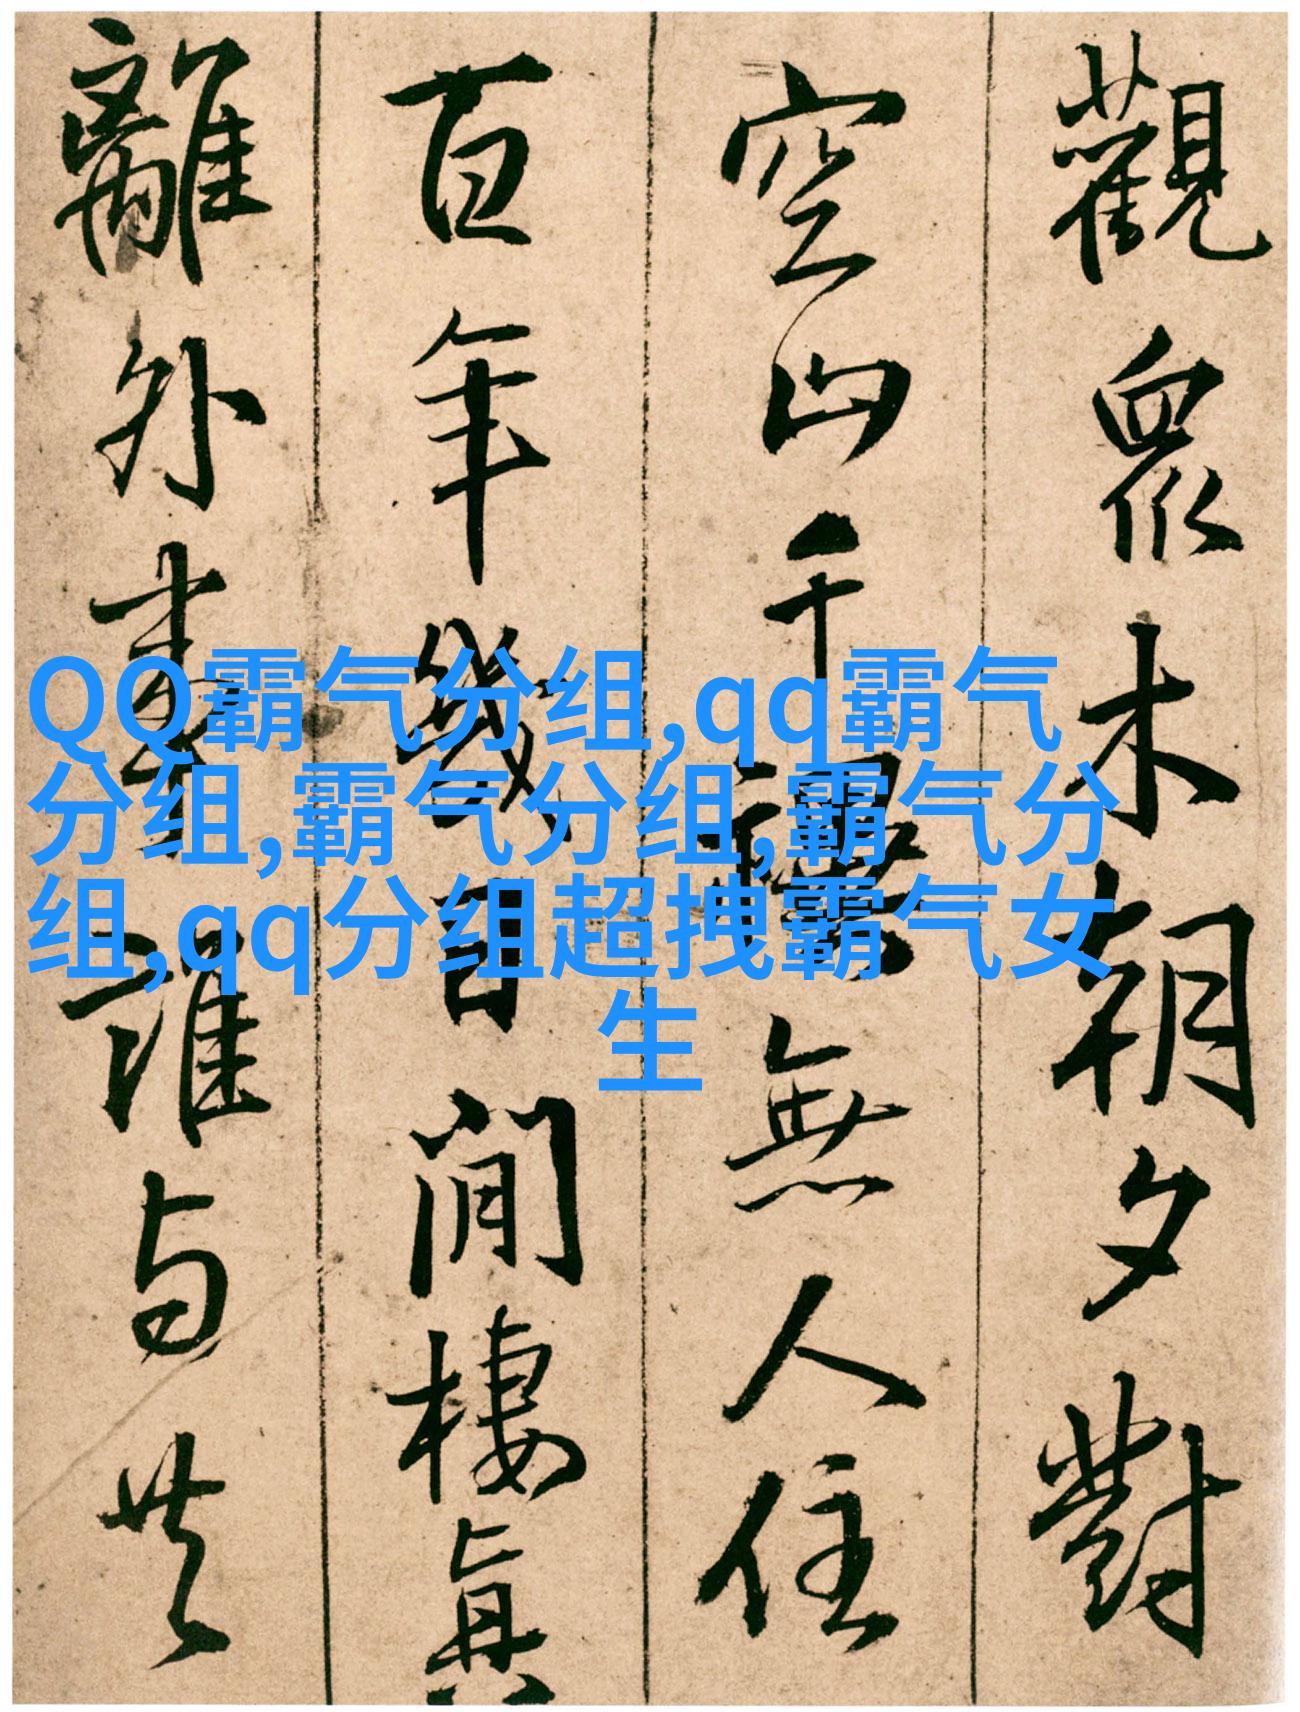 觀眾木朝夕對
空山千無人住
百年幾閒棲真
離外誰与共
QQ霸气分组,qq霸气
分组,霸气分组,霸气分
组,qq分组超拽霸气女
生